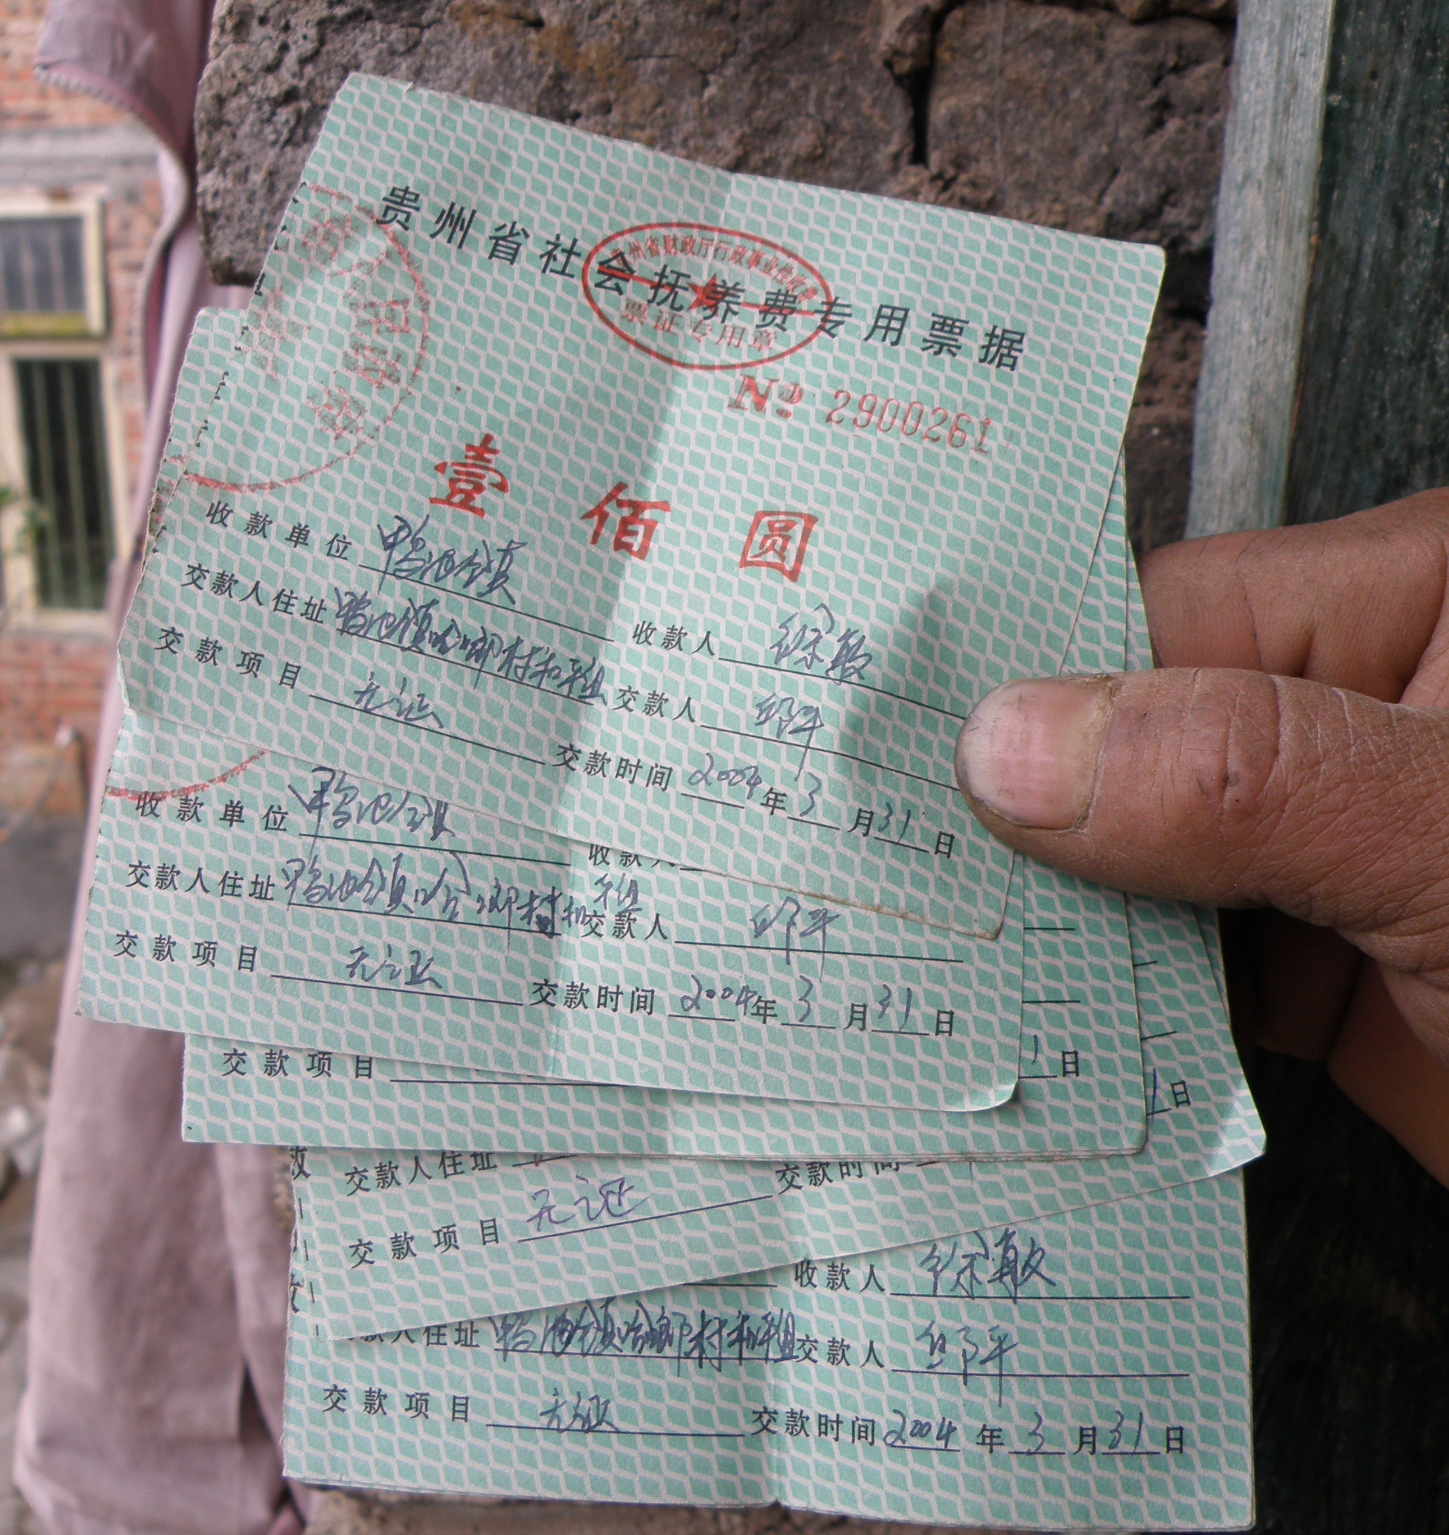 贵州省社会抚养费专用票据
州省财政厅行政事业性收费
票证专用章
№ 2900261
壹佰圆
收款单位 鸭池镇
收款人 徐敏
交款人住址 鸭池镇哈郎村和平组
交款人 邱平
交款项目 无证
交款时间 2004年3月31日
收款单位 鸭池镇
收款人
交款人住址 鸭池镇哈郎村和平组
交款人 邱平
交款项目 无证
交款时间 2004年3月31日
交款项目
1日
1日
交款人住址
交款时间
交款项目 无证
收款人 徐敏
款人住址 鸭池镇哈郎村和平组
交款人 邱平
交款项目 无证
交款时间 2004年3月31日